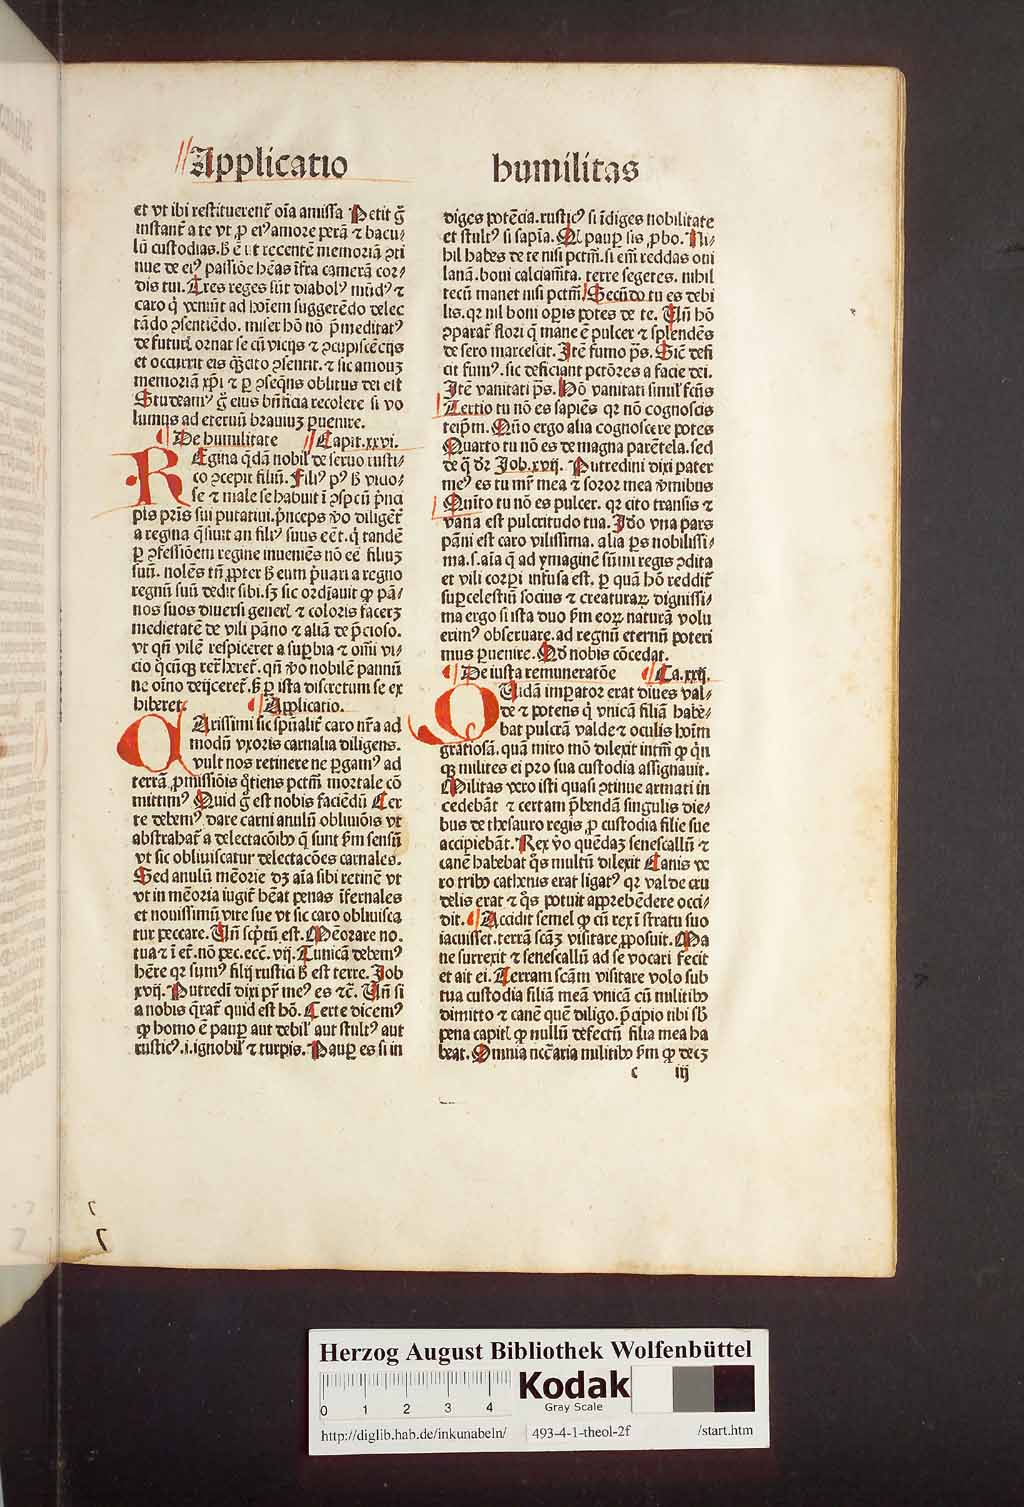 Applicatio
humilitas
et vt ibi restituerent̃ oĩa amissa Petit g̃
instant̃ a te vt ꝓ eiꝰ amore perã ⁊ bacu⸗
lũ custodias. h̃ ẽ vt recentẽ memoriã ꝯti
nue de eiꝰ passiõe hẽas ĩfra camerã cor⸗
dis tui. Tres reges sũt diabolꝰ mũdꝰ ⁊
caro q̇ veniũt ad hoĩem suggerẽdo delec
tãdo ꝯsentiẽdo. miser hõ nõ p̃meditatꝰ
de futuri ornat se cũ vicijs ⁊ ꝯcupiscẽcijs
et occurrit eis q̃cito ꝯsentit. ⁊ sic amouꝫ
memoriã xp̃i ⁊ ꝑ ꝯseq̃ns oblitus dei est
Studeamꝰ g̃ eius bñficia recolere si vo
lumus ad eternũ brauiuꝫ ꝑuenire.
De humilitate Capit.xxvi.
REgina q̃dã nobil̃ de seruo rusti⸗
co ꝯcepit filiũ. Filiꝰ pꝰ h̃ vicio⸗
se ⁊ male se habuit ĩ ꝯspcũ p̃nci
pis pr̃is sui putatiui. p̃nceps v̊o diligẽt̃
a regina q̃siuit an filiꝰ suus eẽt. q̇ tandẽ
ꝑ ꝯfessiõem regine inueniẽs nõ eẽ filiuꝫ
suũ. nolẽs tñ ꝓpter h̃ eum p̃uari a regno
regnũ suũ dedit sibi. sꝫ sic ordĩauit ꝙ pã⸗
nos suos diuersi generl̃ ⁊ coloris facerꝫ
medietatẽ de vili pãno ⁊ aliã de p̃cioso.
vt qñ vilẽ respiceret a suꝑbia ⁊ om̃i vi⸗
cio q̃cũqꝫ ret̃heret̃. qñ v̊o nobilẽ pannũ
ne oĩno deijceret̃. h̃ ꝑ ista discretum se ex
hiberet.
Applicatio.
CArissimi sic spũalit̃ caro nr̃a ad
modũ vxoris carnalia diligens.
vult nos retinere ne ꝑgamꝰ ad
terrã ꝓmissiõis q̃tiens pctm̃ mortale cõ
mittimꝰ Quid g̃ est nobis faciẽdũ Cer
te debemꝰ dare carni anulũ obliuiõis vt
abstrahat̃ a delectacõibꝰ q̃ sunt ẜm sensũ
vt sic obliuiscatur delectacões carnales.
Sed anulũ mẽorie dꝫ aĩa sibi retinẽ vt
vt in mẽoria iugit̃ hẽat penas ĩfernales
et nouissimũ vite sue vt sic caro obliuisca
tur peccare. Vñ scp̃tũ est. Mẽorare no.
tua ⁊ ĩ et̃. nõ pec.ecc̃. vij. Tunicã debemꝰ
hẽre qꝛ sumꝰ filij rustici h̃ est terre. Job
xvij. Putredĩ dixi pr̃ meꝰ es ⁊c̃. Vñ si
a nobis q̃rat̃ quid est hõ. Certe dicemꝰ
ꝙ homo ẽ pauꝑ aut debil̃ aut stultꝰ aut
rusticꝰ.i.ignobil̃ ⁊ turpis. Pauꝑ es si in
diges potẽcia. rusticꝰ si ĩdiges nobilitate
et stultꝰ si sapĩa. Ql pauꝑ sis ꝓbo. Ni⸗
hil habes de te nisi pctm̃. si em̃ reddas oui
lanã. boui calciam̃ta. terre segetes. nihil
tecũ manet nisi pctm̃ Secũdo tu es debi
lis. qꝛ nil boni oꝑis potes de te. Vñ hõ
ꝯparat̃ flori q̇ mane ẽ pulcer ⁊ splendẽs
de sero marcescit. Itẽ fumo p̃s. Sic̃ defi
cit fumꝰ. sic deficiant pctõres a facie dei.
Itẽ vanitati p̃s. Hõ vanitati simil̃ fc̃us
Tertio tu nõ es sapiẽs qꝛ nõ cognoscis
teip̃m. Qũo ergo alia cognoscere potes
Quarto tu nõ es de magna parẽtela. sed
de q̃ dr̃ Job.xvij. Putredini dixi pater
meꝰ es tu mr̃ mea ⁊ soror mea v̊mibus
Quĩto tu nõ es pulcer. qꝛ cito transis ⁊
vana est pulcritudo tua. Ido vna pars
pãni est caro vilissima. alia ꝑs nobilissi⸗
ma. s. aĩa q̃ ad ymaginẽ sũmi regis ꝯdita
et vili corꝑi infusa est. ꝑ quã hõ reddit̃
suꝑcelestiũ socius ⁊ creaturaꝝ dignissi⸗
ma ergo si ista duo ẜm eoꝝ naturã volu
erimꝰ obseruare. ad regnũ eternũ poteri
mus ꝑuenire. Qd̃ nobis cõcedat.
De iusta remuneratõe Ca.xxij.
QUidã imꝑator erat diues val⸗
de ⁊ potens q̇ vnicã filiã habe⸗
bat pulcrã valde ⁊ oculis hoĩm
gratiosã. quã miro mõ dilexit intm̃ ꝙ q̃n
qꝫ milites ei pro sua custodia assignauit.
Militas vero isti quasi ꝯtinue armati in
cedebãt ⁊ certam p̃bendã singulis die⸗
bus de thesauro regis ꝓ custodia filie sue
accipiebãt. Rex v̊o quẽdaꝫ senescallũ ⁊
canẽ habebat q̃s multũ dilexit Canis ve
ro tribꝰ cathenis erat ligatꝰ qꝛ valde cru
delis erat ⁊ q̃s potuit apprehẽdere occi⸗
dit. Accidit semel ꝙ cũ rex ĩ stratu suo
iacuisset. terrã scãꝫ visitare ꝓposuit. Ma
ne surrexit ⁊ senescallũ ad se vocari fecit
et ait ei. Terram scãm visitare volo sub
tua custodia filiã meã vnicã cũ militibꝰ
dimitto ⁊ canẽ quẽ diligo. p̃cipio tibi sb̃
pena capitl̃ ꝙ nullũ defectũ filia mea ha
beat. Omnia nccãria militibꝰ ẜm ꝙ decꝫ
c iij
Herzog August Bibliothek Wolfenbüttel
0 1 2 3 4
Kodak
Gray Scale
http://diglib.hab.de/inkunabeln/ 493-4-1-theol-2f /start.htm